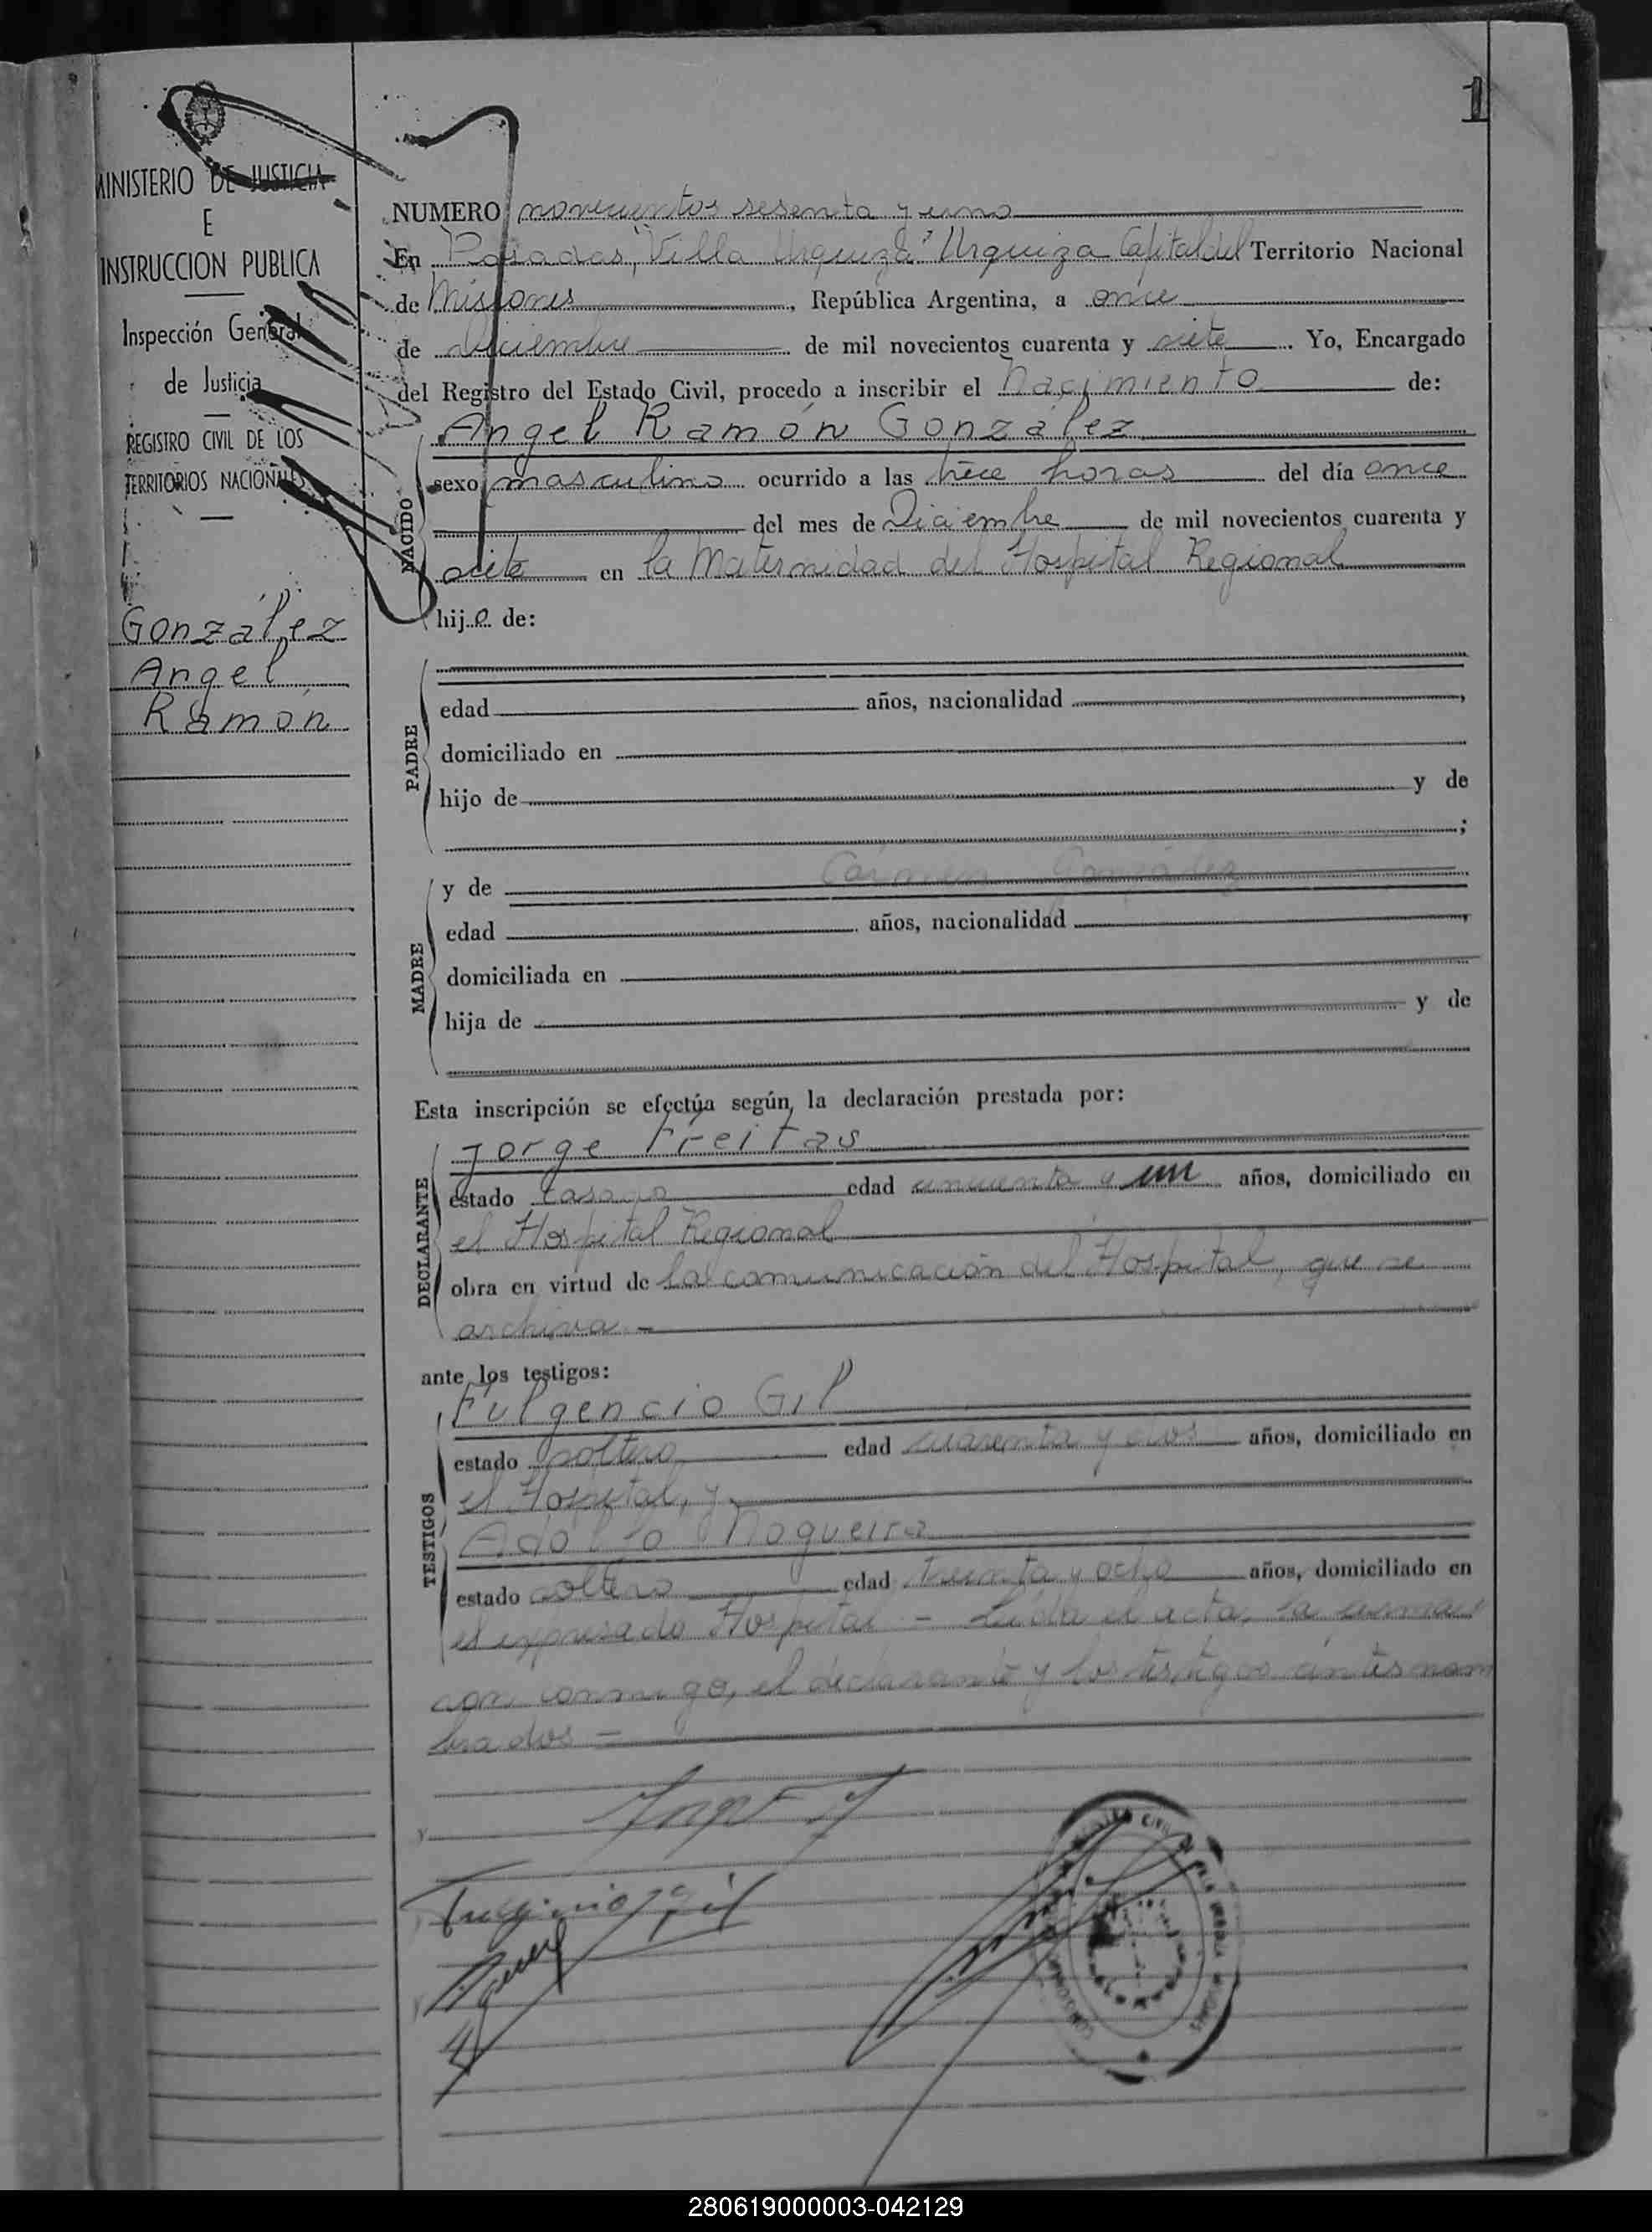 1
MINISTERIO DE JUSTICIA
E
INSTRUCCION PUBLICA
Inspección General
de Justicia
REGISTRO CIVIL DE LOS
TERRITORIOS NACIONALES
González
Angel
Ramón
NUMERO novecientos sesenta y uno
En Posadas, "Villa Urquiza" Urquiza Capital del Territorio Nacional
de Misiones, República Argentina, a once
de diciembre de mil novecientos cuarenta y siete. Yo, Encargado
del Registro del Estado Civil, procedo a inscribir el Nacimiento de:
Angel Ramón González
NACIDO
sexo masculino ocurrido a las trece horas del día once
del mes de Diciembre de mil novecientos cuarenta y
siete en la Maternidad del Hospital Regional
hijo de:
PADRE
edad años, nacionalidad ,
domiciliado en
hijo de y de
;
MADRE
y de Carmen González
edad años, nacionalidad ,
domiciliada en
hija de y de
Esta inscripción se efectúa según la declaración prestada por:
DECLARANTE
Jorge Freitas
estado casado edad cincuenta y un años, domiciliado en
el Hospital Regional
obra en virtud de la comunicación del Hospital, que se
archiva.-
ante los testigos:
TESTIGOS
Fulgencio Gil
estado soltero edad cuarenta y dos años, domiciliado en
el Hospital, y
Adolfo Nogueira
estado soltero edad treinta y ocho años, domiciliado en
el expresado Hospital - Leída el acta, la firma
ron conmigo, el declarante y los testigos antes nom
brados =
280619000003-042129